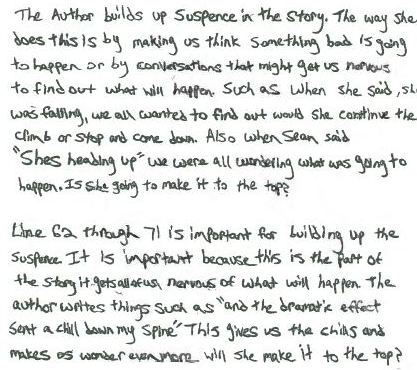 The Author builds up Suspence in the Story. The way she
does this is by making us think something bad is going
to happen or by conversations that might get us nervous
to find out what will happen. Such as when she said, she
was falling, we all wanted to find out would she continue the
climb or stop and come down. Also when Sean said
"Shes heading up" we were all wondering what was going to
happen. Is she going to make it to the top?
Line 62 through 71 is important for building up the
suspence. It is important because this is the part of
the story it gets all of us nervous of what will happen. The
author writes things such as "and the dramatic effect
sent a chill down my spine" This gives us the chills and
makes us wonder even more will she make it to the top?